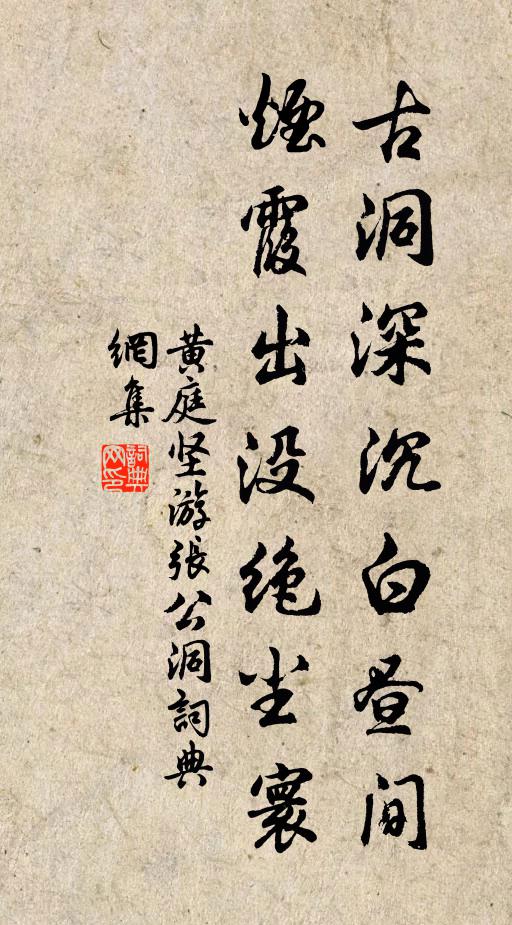 古洞深沉白昼间
煙霞出没绝尘寰
黄庭坚游張公洞詞典
網集
詞典
网印